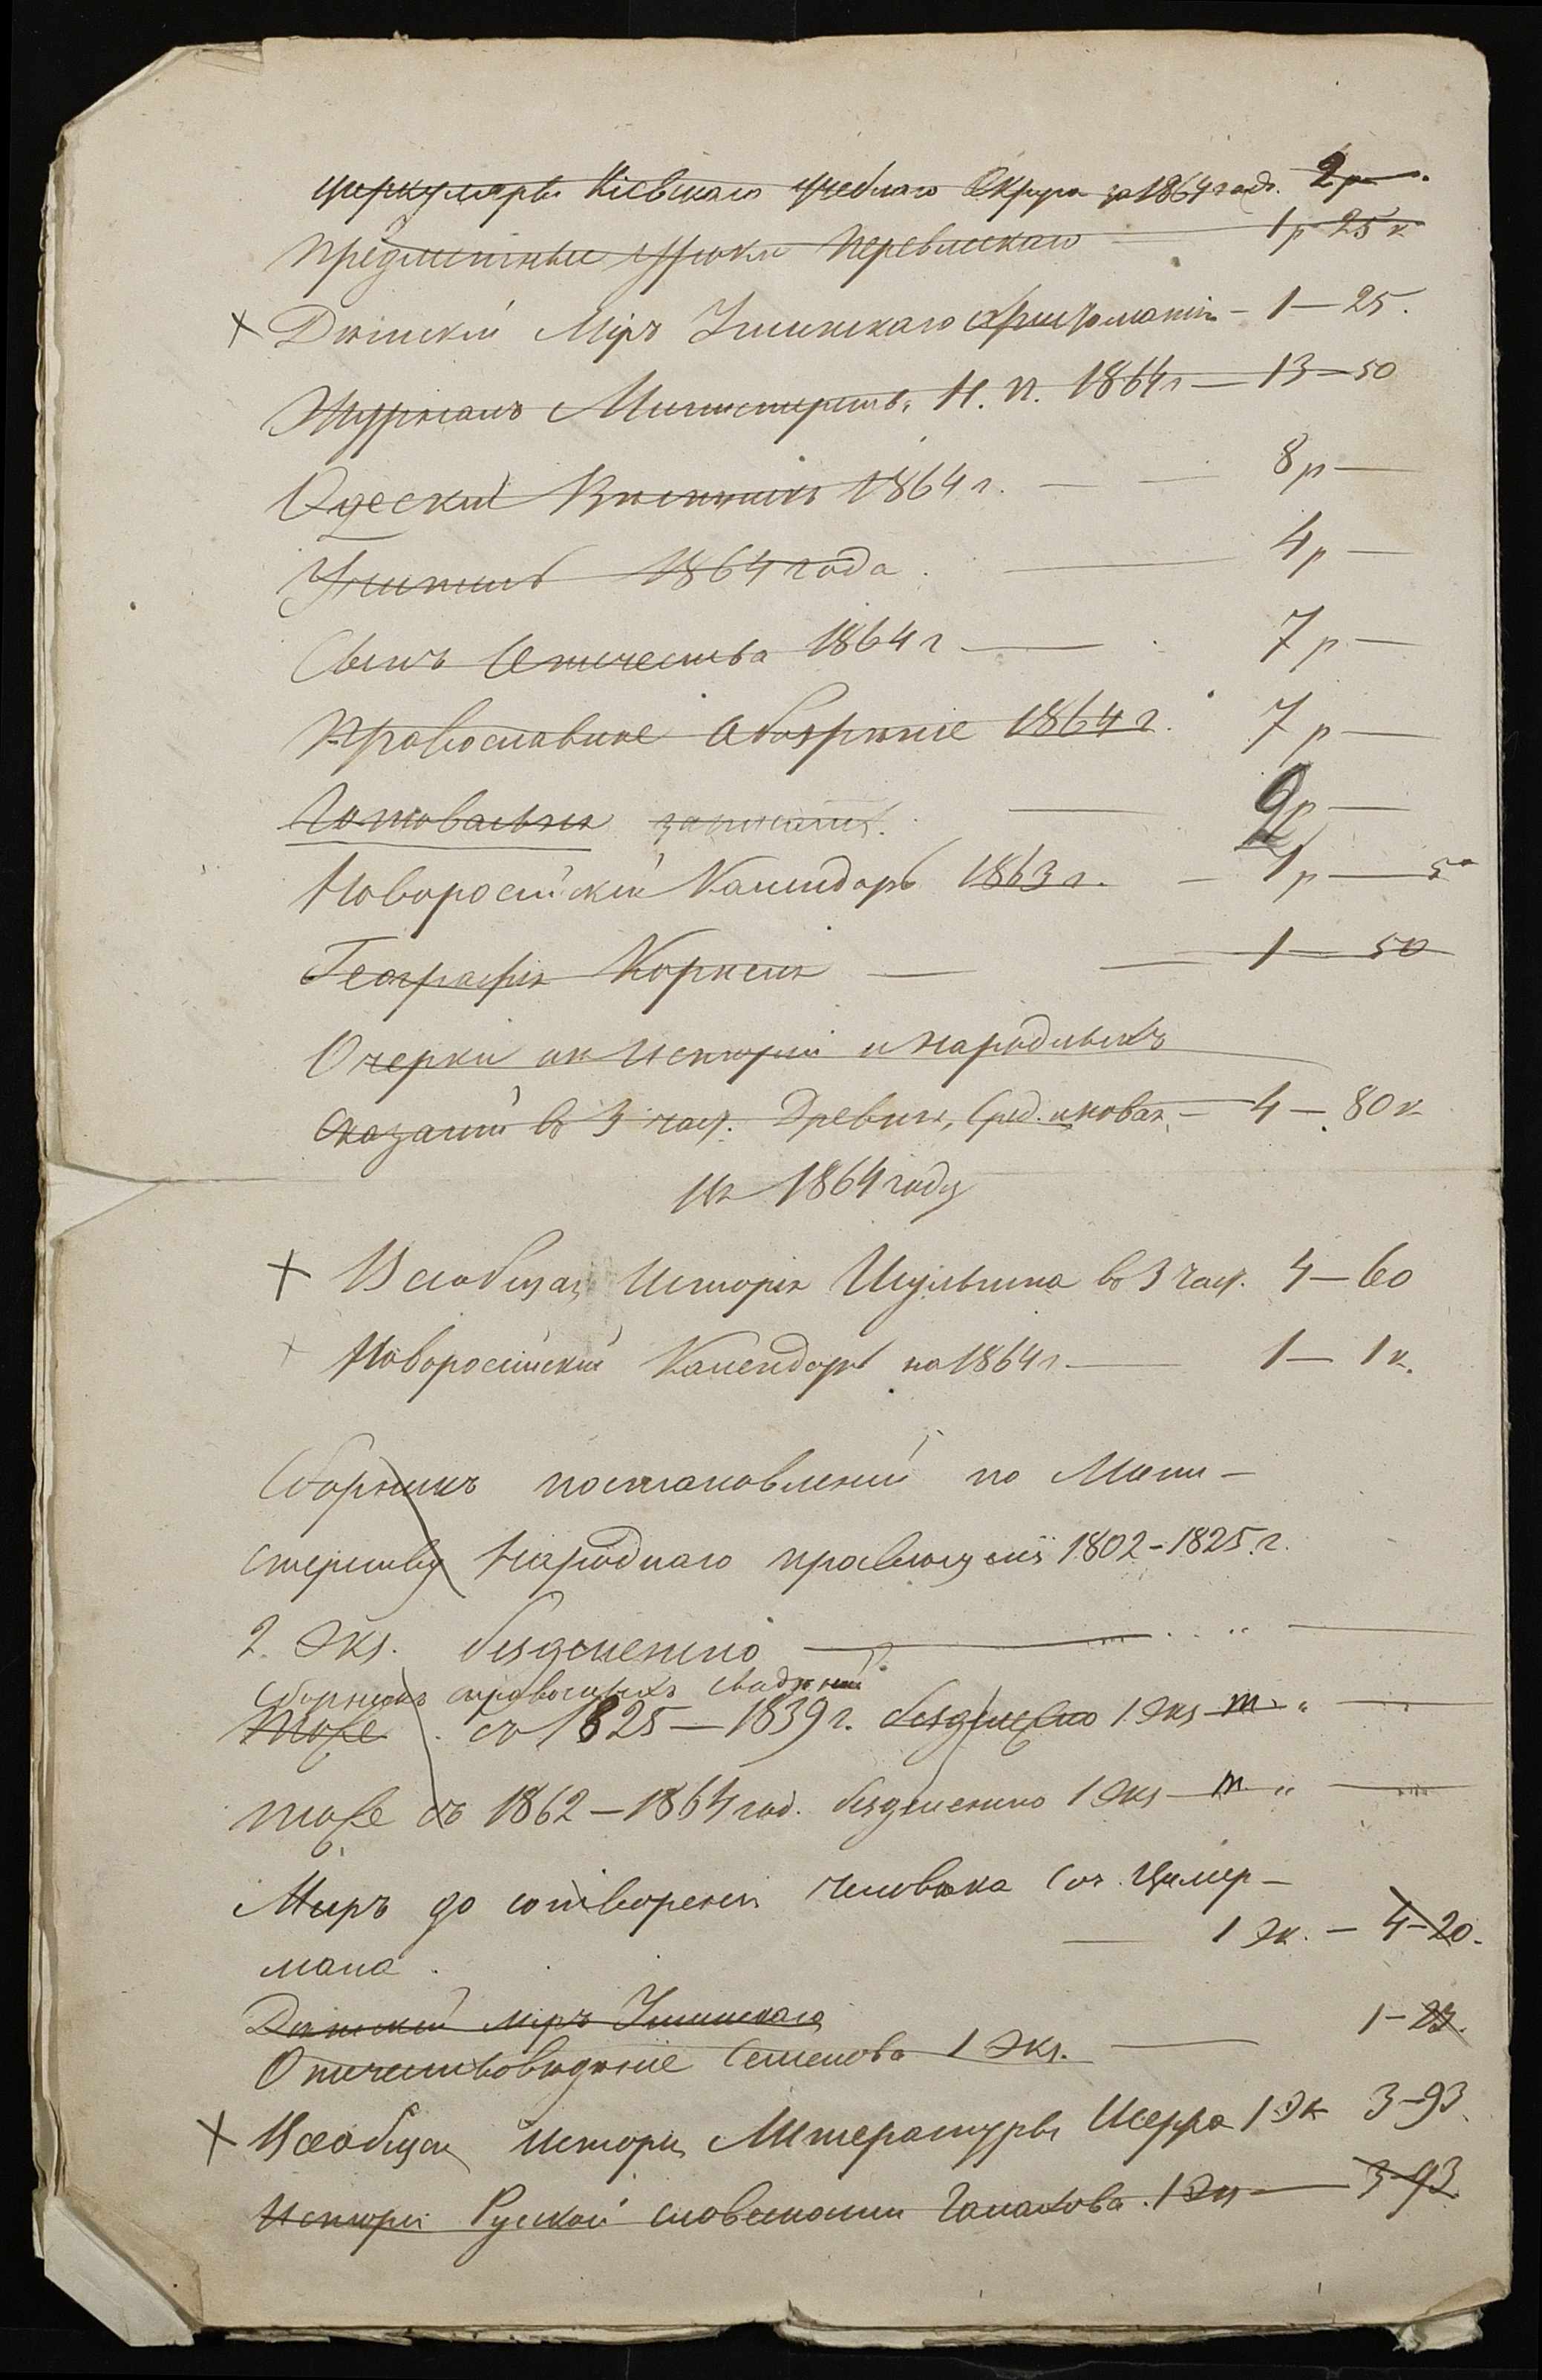 Циркуляры Кіевскаго Учебнаго Округа за 1864 годъ. 2 р —
Предметные уроки Перевлескаго — 1 р 25 к
× Дѣтскій Міръ Ушинскаго Христоматія — 1 — 25.
Журналъ Министерств. Н. П. 1864 г — 13 — 50
Одескій Вѣстникъ 1864 г. — — 8 р —
Учитель 1864 года. — 4 р —
Сынъ Отечества 1864 г — 7 р —
Православное Обозрѣніе 1864 г. 7 р —
Готовальня — 2 р —
Новоросійскій Календарь 1863 г. — 1 р — 50
Географія Корнеля — — 1 — 50
Очерки из Исторіи и народныхъ
сказаній въ 3 част. Древняя, Сред. и новая — 4 — 80 к
Въ 1864 году
× Всеобщая Исторія Шульгина въ 3 част. 4 — 60
× Новоросійскій Календарь на 1864 г — 1 — 1 к.
Сборникъ постановленій по Мини-
стерству Народнаго просвещенія 1802 - 1825 г.
2. Экз. безденежно —
Сборникъ свѣдѣній
тоже. съ 1825 — 1839 г. безденежно 1 Экз — т. " —
тоже съ 1862 — 1864 год. безденежно 1 Экз — т. " —
Миръ до сотворенія человѣка Соч. Цимер-
мана. — 1 Эк. — 4 - 20.
Дѣтскій міръ Ушинскаго
Отечествовѣдѣніе Семенова 1 Экз. — 1 - 23.
× Всеобщая Исторія Литературы Шерра 1 Эк 3 - 93.
Исторія Руской словесности Галахова. 1 Эк — 3 - 93.